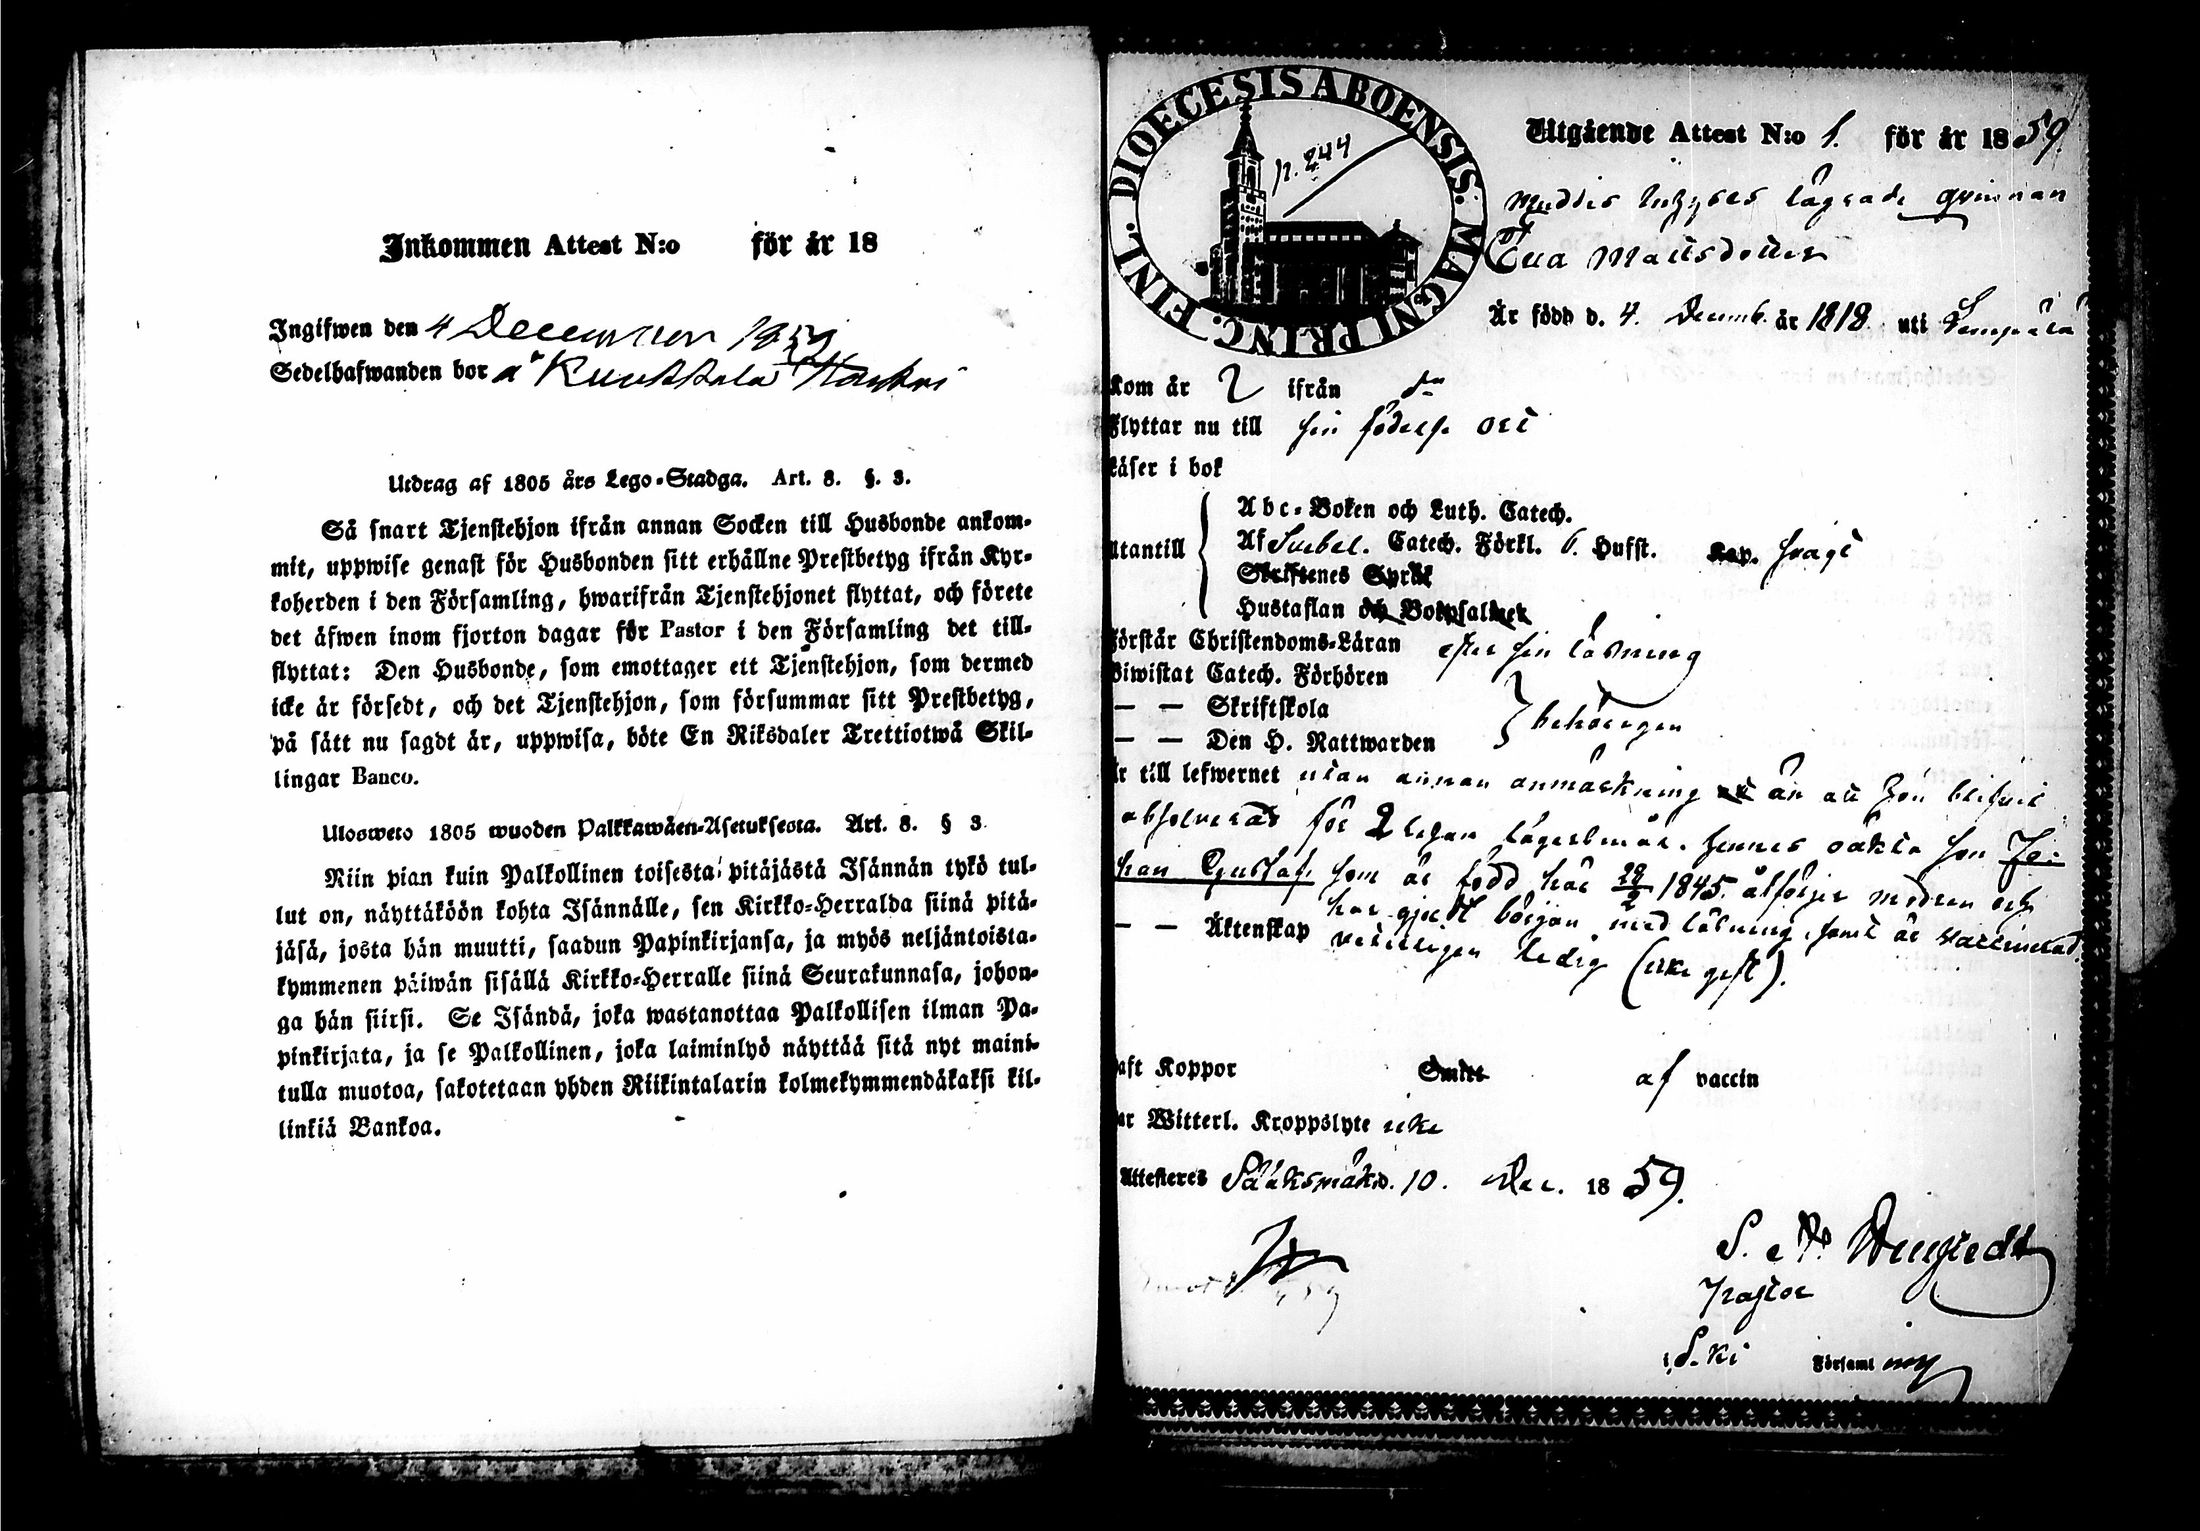 Inkommen Attest N:o för år 18
Ingifwen den 4 December 1859
Sedelhafwanden bor å Kurkkala
Utdrag af 1805 års Lego-Stadga. Art. 8. §. 3.
Så snart Tjenstehjon ifrån annan Socken till Husbonde ankom-
mit, uppwise genast för Husbonden sitt erhållne Prestbetyg ifrån Kyr-
koherden i den Församling, hwarifrån Tjenstehjonet flyttat, och förete
det äfwen inom fjorton dagar för Pastor i den Församling det till-
flyttat: Den Husbonde, som emottager ett Tjenstehjon, som dermed
icke är försedt, och det Tjenstehjon, som försummar sitt Prestbetyg,
på sätt nu sagdt är, uppwisa, böte En Riksdaler Trettiotwå Skil-
lingar Banco.
Ulosweto 1805 wuoden Palkkawäen-Asetuksesta. Art. 8. § 3
Niin pian kuin Palkollinen toisesta pitäjästä Isännän tykö tul-
lut on, näyttäköön kohta Isännälle, sen Kirkko-Herralda siinä pitä-
jäsä, josta hän muutti, saadun Papinkirjansa, ja myös neljäntoista-
kymmenen päiwän sisällä Kirkko-Herralle siinä Seurakunnasa, johon-
ga hän siirsi. Se Isändä, joka wastanottaa Palkollisen ilman Pa-
pinkirjata, ja se Palkollinen, joka laiminlyö näyttää sitä nyt maini-
tulla muotoa, sakotetaan yhden Riikintalarin kolmekymmendäkaksi kil-
linkiä Bankoa.
DIOECESIS ABOENSIS. MAGNI PRINC. FINL.
p. 244
Utgående Attest N:o 1. för år 1859.
lägrade qvinnan
Eva Mattsdotter
Är född d. 4. Decemb. år 1818. uti Lempälä
Kom år ifrån
Flyttar nu till sin födelse ort
Läser i bok
Utantill
Abc-Boken och Luth. Catech.
Af Svebel. Catech. Förkl. 6. Hufst. Kap. svagt
Skriftenes Språk
Hustaflan och Botpsalmer
Förstår Christendoms-Läran efter sin läsning
Biwistat Catech. Förhören
— — Skriftskola
behörigen
— — Den H. Nattwarden
Är till lefwernet utan annan anmärkning än att hon blifvit
absolverad för 2 resan lägersmål. Hennes oäkta son Jo-
han Gustaf, som är född här 28/2 1845. åtföljer modren och
har gjort början med läsning, samt är vaccinerad.
— — Äktenskap veterligen ledig (icke gift).
Haft Koppor Smitt af vaccin
Har Witterl. Kroppslyte icke
Attesteres Sääksmäki d. 10. Dec. 1859.
Pastor
i S.ki Församling